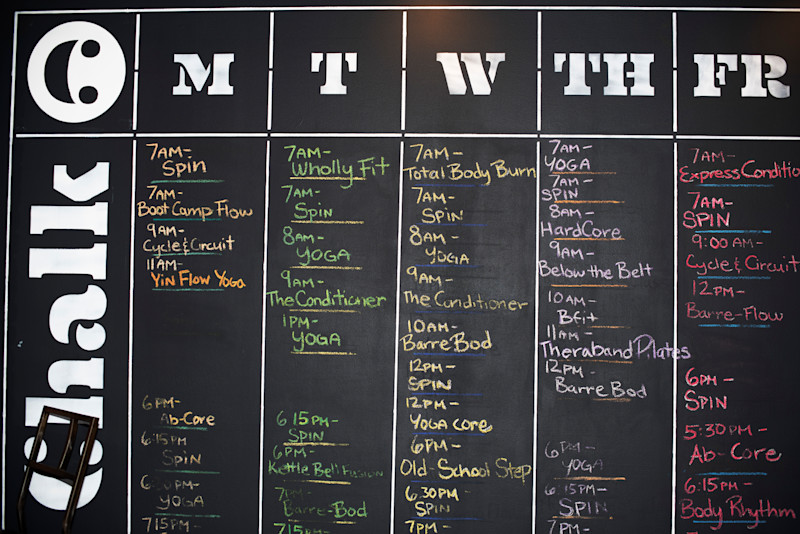 M
T
W
TH
FR
Chalk
7AM-
Spin
7AM-
Boot Camp Flow
9AM-
Cycle & Circuit
11AM-
Yin Flow Yoga
6PM-
Ab-Core
6:15PM
SPIN
YOGA
7:15PM-
7AM-
Wholly Fit
7AM-
Spin
8AM-
YOGA
9AM-
The Conditioner
1PM-
YOGA
6:15PM-
SPIN
6PM-
Kettle Bell Fusion
7PM-
Barre-Bod
7:15PM-
7AM-
Total Body Burn
7AM-
SPIN
8AM-
YOGA
9AM-
The Conditioner
10AM-
Barre Bod
12PM-
SPIN
12PM-
YOGA core
6PM-
Old-School Step
6:30PM-
SPIN
7PM-
7AM-
YOGA
7AM-
SPIN
8AM-
HardCore
9AM-
Below the Belt
10AM-
BFit
11AM-
Theraband Pilates
12PM-
Barre Bod
6PM-
YOGA
6:15PM-
SPIN
7PM-
7AM-
Express Conditio
7AM-
SPIN
9:00AM-
Cycle & Circuit
12PM-
Barre-Flow
6PM-
SPIN
5:30PM-
Ab-Core
6:15PM-
Body Rhythm